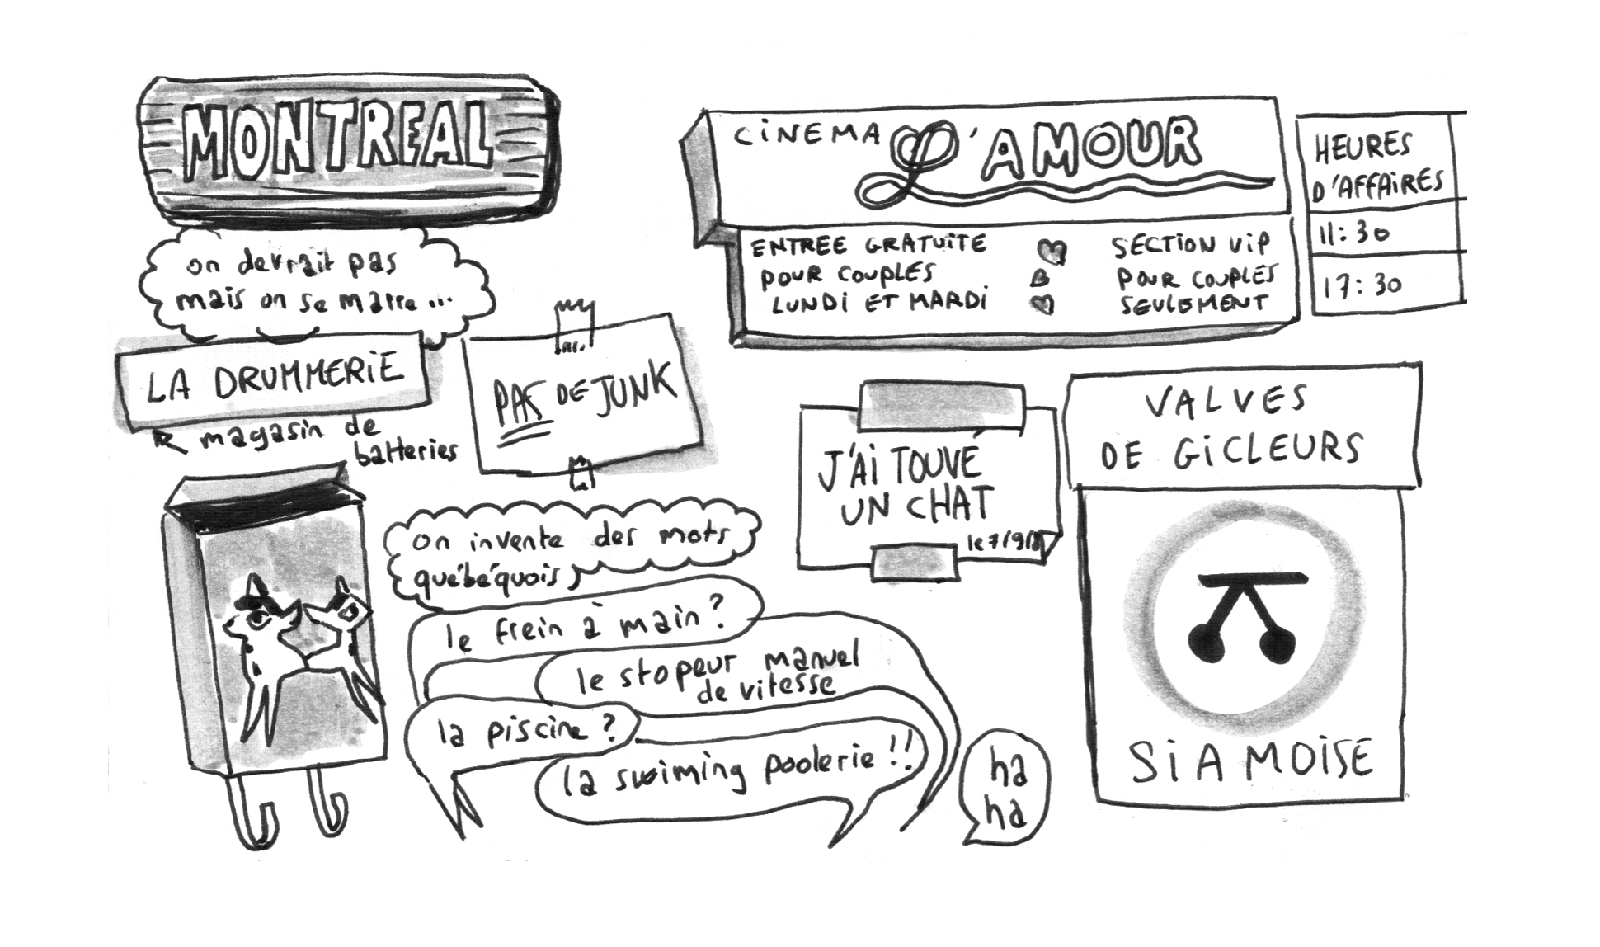 MONTREAL
on devrait pas
mais on se marre...
LA DRUMMERIE
magasin de
batteries
PAS DE JUNK
CiNEMA L'AMOUR
ENTREE GRATUITE
POUR COUPLES
LUNDI ET MARDI
SECTION VIP
POUR COUPLES
SEULEMENT
HEURES
D'AFFAIRES
11:30
17:30
J'AI TOUVÉ
UN CHAT
VALVES
DE GICLEURS
SIAMOISE
on invente des mots
québéquois
le frein à main?
le stopeur manuel
de vitesse
la piscine?
la swiming poolerie!!
ha
ha